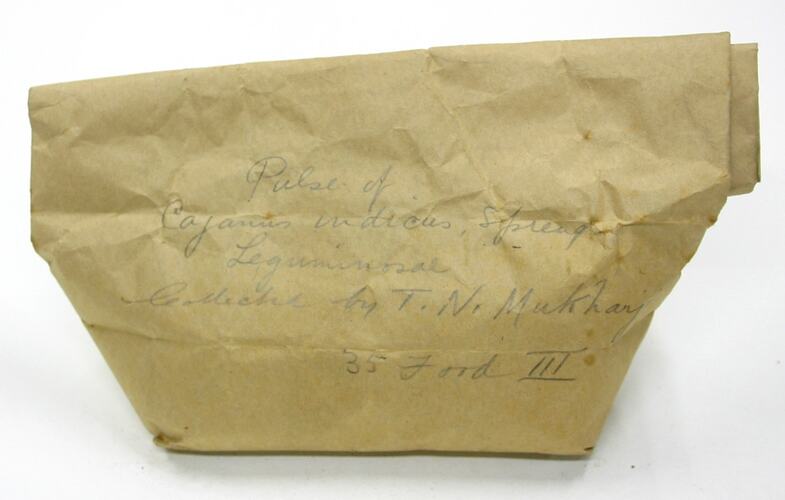 Pulse of
Cajanus indicus, Spreng
Leguminosae
Collected by T. N. Mukharj
35 Food III